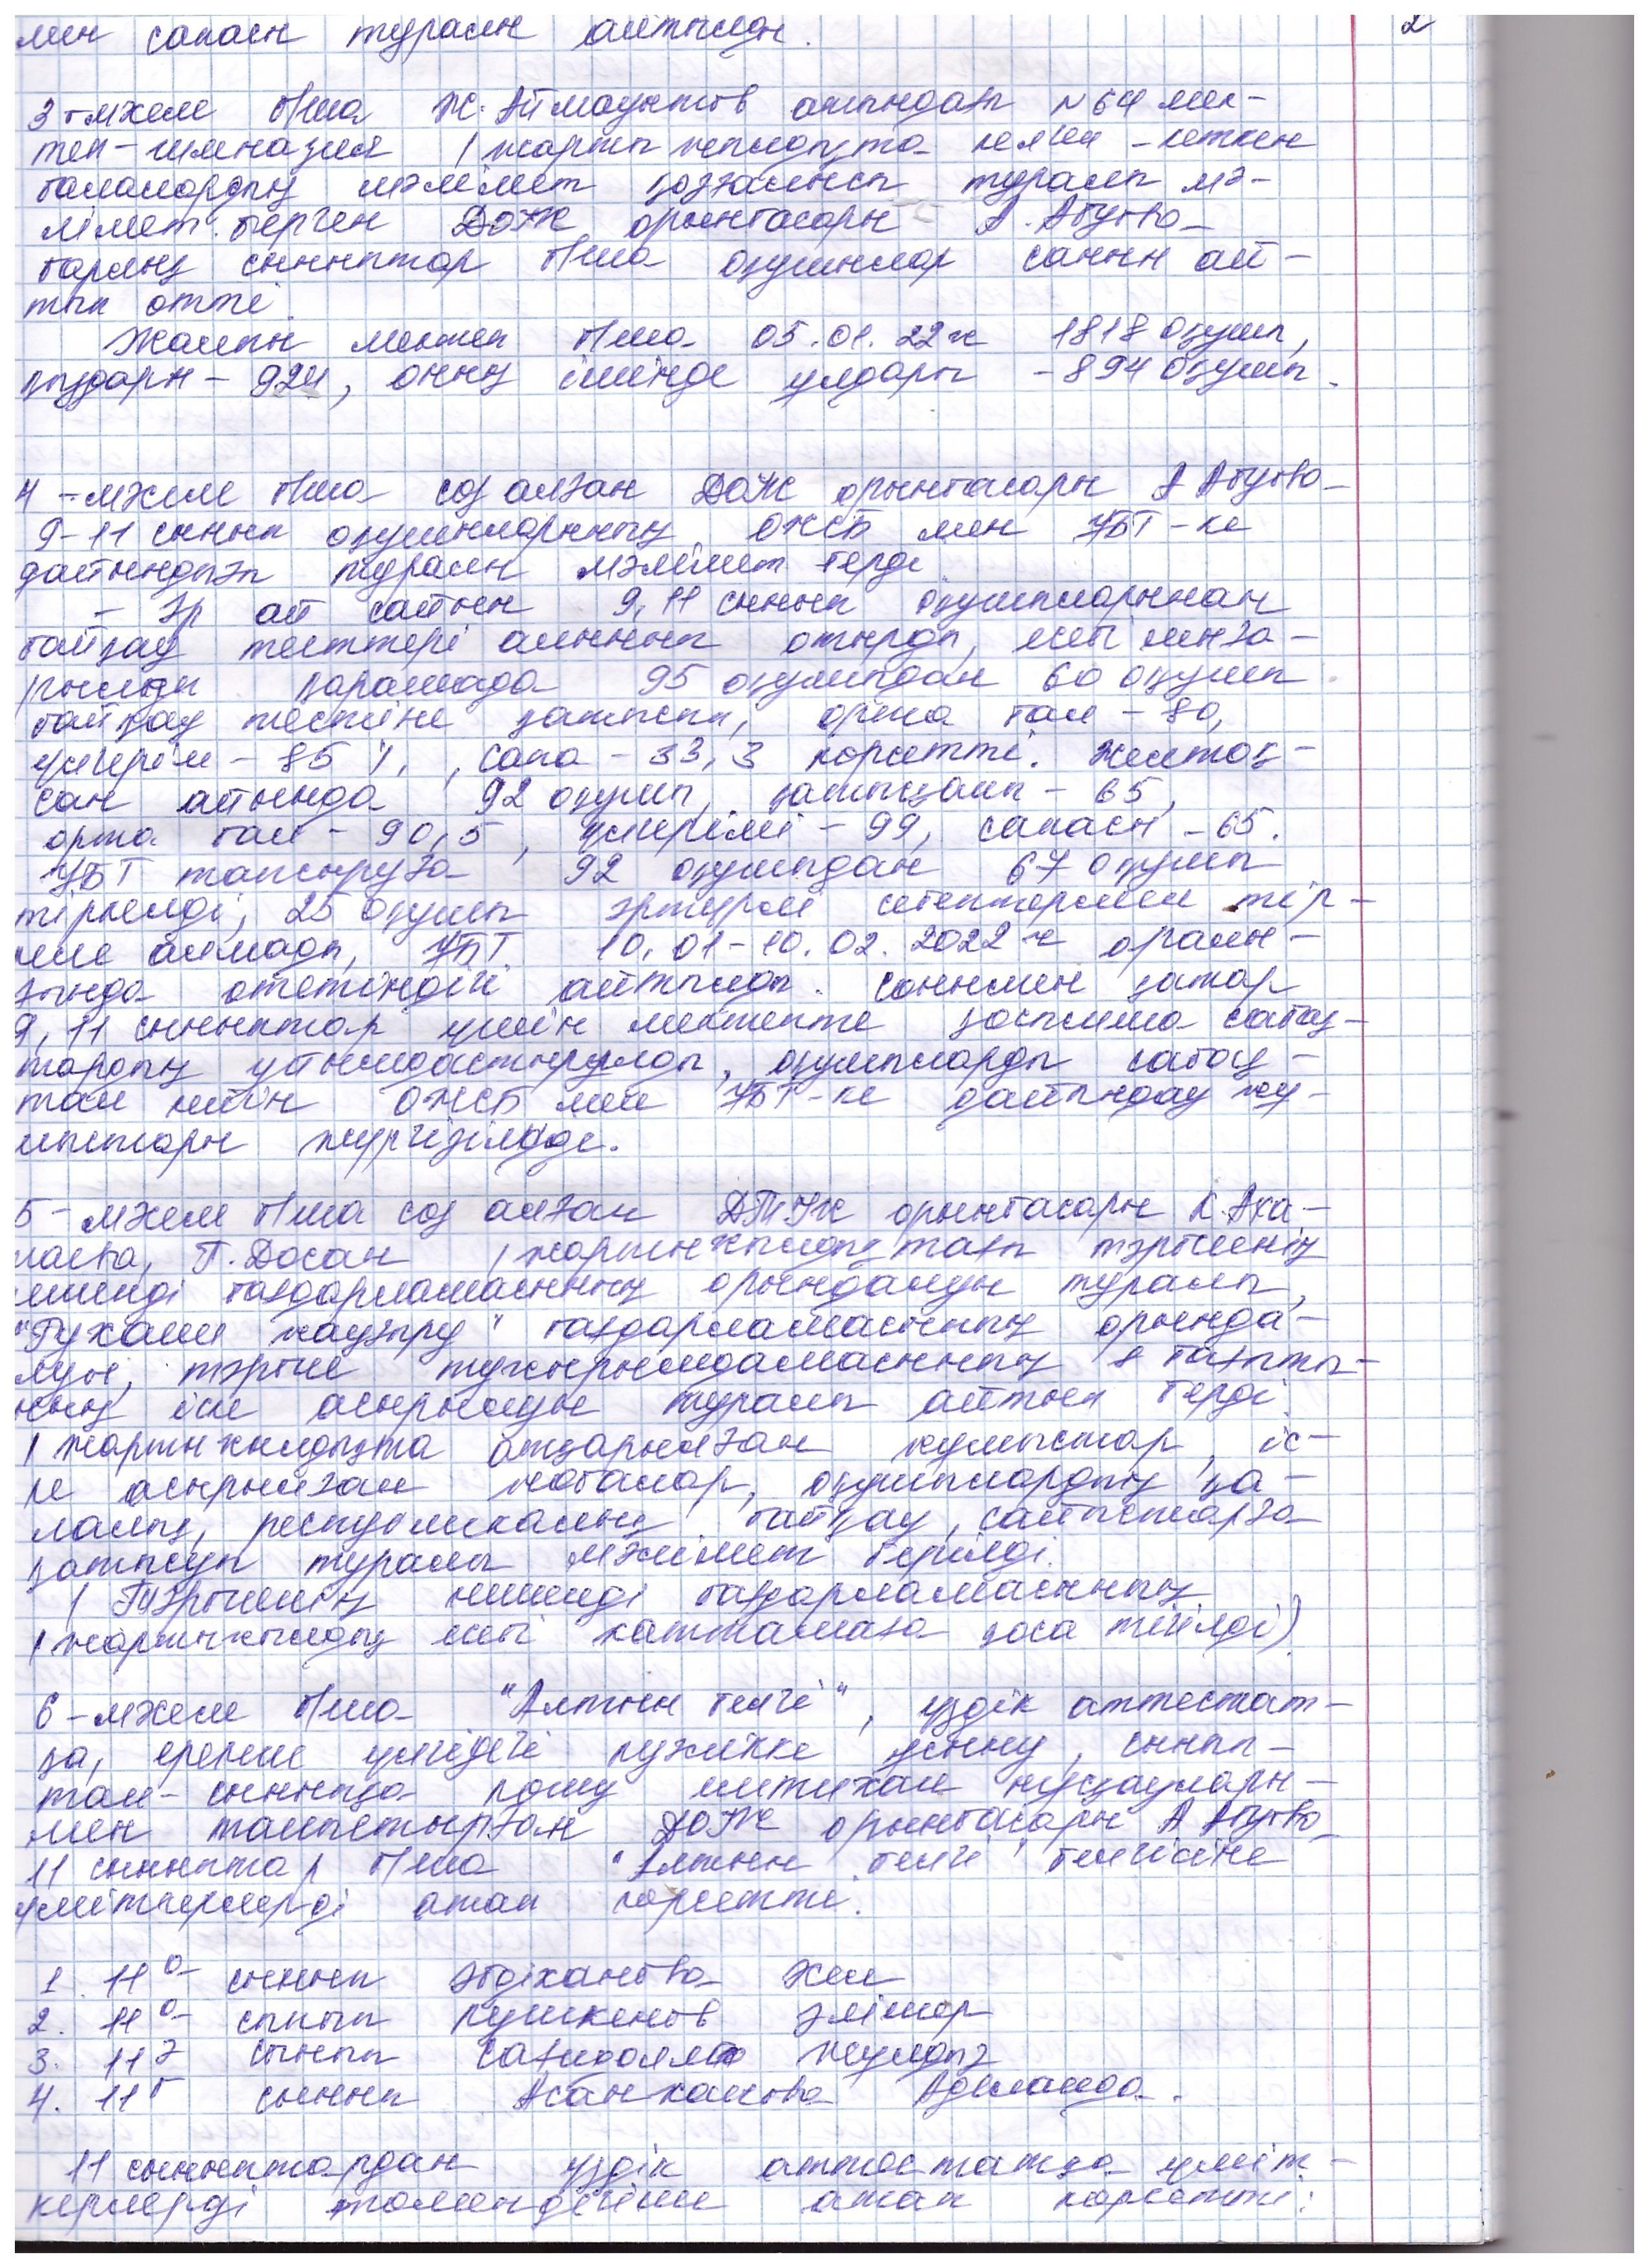 мен сапасы туралы айтылды. 2
3-мәселе б/ша Ж. Аймауытов атындағы №64 мек-
теп-гимназия I жарты жылдықта келген-кеткен
балалардың мәлімет қозғалысы туралы мә-
лімет берген ДОІЖ орынбасары А. Абуова
барлық сыныптар б/ша оқушылар санын ай-
тып өтті.
Жалпы мектеп б/ша 05.01.22ж 1818 оқушы,
қыздары - 924, оның ішінде ұлдары - 894 оқушы.
4-мәселе б/ша сөз алған ДОІЖ орынбасары А Абуова
9-11 сынып оқушыларының ОЖСБ мен ҰБТ-ке
дайындығы туралы мәлімет берді
- Әр ай сайын 9, 11 сынып оқушыларынан
байқау тесттері алынып отырды,
қарашада 95 оқушыдан 60 оқушы
байқау тестіне қатысты, орта бал - 80,
үлгерім - 85 %, сапа - 33,3 көрсетті. Желтоқ-
сан айында 92 оқушы, қатысқаны - 65,
орта бал - 90,5, үлгерімі - 99, сапасы - 65.
ҰБТ тапсыруға 92 оқушыдан 67 оқушы
тіркелді, 25 оқушы әртүрлі себептермен тір-
келе алмады, ҰБТ 10.01-10.02.2022ж аралы-
ғында өтетіндігі айтылды. Сонымен қатар
9, 11 сыныптар үшін мектепте қосымша сабақ-
тардың ұйымдастырулды, оқушыларды сабақ-
тан кейін ОЖСБ мен ҰБТ-ке дайындау жұ-
мыстары жүргізілуде.
5-мәселе б/ша сөз алған ДТІЖ орынбасары К. Аха-
това, Т. Досан I жартыжылдықтағы тәрбиенің
кешенді бағдарламасының орындалуы туралы,
"Рухани жаңғыру" бағдарламасының орында-
луы, тәрбие тұжырымдамасының 8 бағыты-
ның іске асырылуы туралы айтып берді.
I жартыжылдықта атқарылған жұмыстар, іс-
ке асырылған жобалар, оқушылардың қа-
лалық, республикалық байқау, сайыстарға
қатысуы туралы мәлімет берілді.
(Тәрбиенің кешенді бағдарламасының
I жартыжылдық есебі хаттамаға қоса тігілді)
6-мәселе б/ша "Алтын белгі", үздік аттестат-
қа, ерекше үлгідегі куәлікке ұсыну, сынып-
тан-сыныпқа көшу емтихан нұсқаулары-
мен таныстырған ДОІЖ орынбасары А Абуова
11 сыныптар б/ша "Алтын белгі" белгісіне
үміткерлерді атап көрсетті.
1. 11 а сынып Әбдіханова Әсем
2. 11 а сынып Кушкенов Әлішер
3. 11 ә сынып Сағидолла Жұлдыз
4. 11 г сынып Асанханова Аделаида.
11 сыныптардан үздік аттестатқа үміт-
керлерді төмендегіше атап көрсетті: